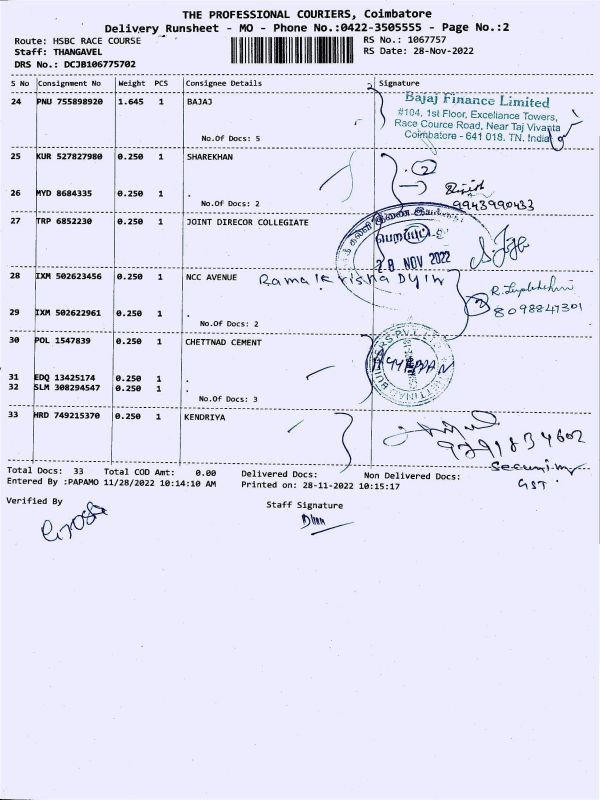 THE PROFESSIONAL COURIERS, Coimbatore
Delivery Runsheet - MO - Phone No.:0422-3505555 - Page No.:2
Route: HSBC RACE COURSE
RS No.: 1067757
Staff: THANGAVEL
RS Date: 28-Nov-2022
DRS No.: DCJB106775702
S No Consignment No Weight PCS Consignee Details Signature
24 PNU 755898920 1.645 1 BAJAJ
No.Of Docs: 5
Bajaj Finance Limited
#104, 1st Floor, Excellance Towers,
Race Cource Road, Near Taj Vivanta
Coimbatore - 641 018. TN. India
25 KUR 527827980 0.250 1 SHAREKHAN
2
26 MYD 8684335 0.250 1 .
No.Of Docs: 2
9943990433
27 TRP 6852230 0.250 1 JOINT DIRECOR COLLEGIATE
28 NOV 2022
28 IXM 502623456 0.250 1 NCC AVENUE
Ramakrishna
8098847301
29 IXM 502622961 0.250 1 .
No.Of Docs: 2
30 POL 1547839 0.250 1 CHETTNAD CEMENT
31 EDQ 13425174 0.250 1 .
32 SLM 308294547 0.250 1 .
No.Of Docs: 3
33 HRD 749215370 0.250 1 KENDRIYA
9791834602
GST
Total Docs: 33 Total COD Amt: 0.00 Delivered Docs: Non Delivered Docs:
Entered By :PAPAMO 11/28/2022 10:14:10 AM Printed on: 28-11-2022 10:15:17
Verified By
Staff Signature